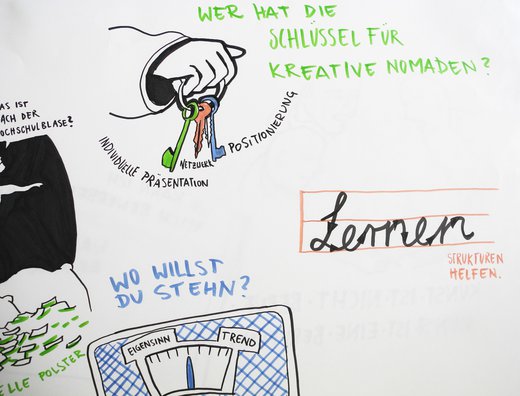 WER HAT DIE
SCHLÜSSEL FÜR
KREATIVE NOMADEN?
INDIVIDUELLE PRÄSENTATION
NETZWERK
POSITIONIERUNG
AS IST
ACH DER
OCHSCHULBLASE?
Lernen
STRUKTUREN
HELFEN.
WO WILLST
DU STEHN?
EIGENSINN
TREND
ELLE POLSTER